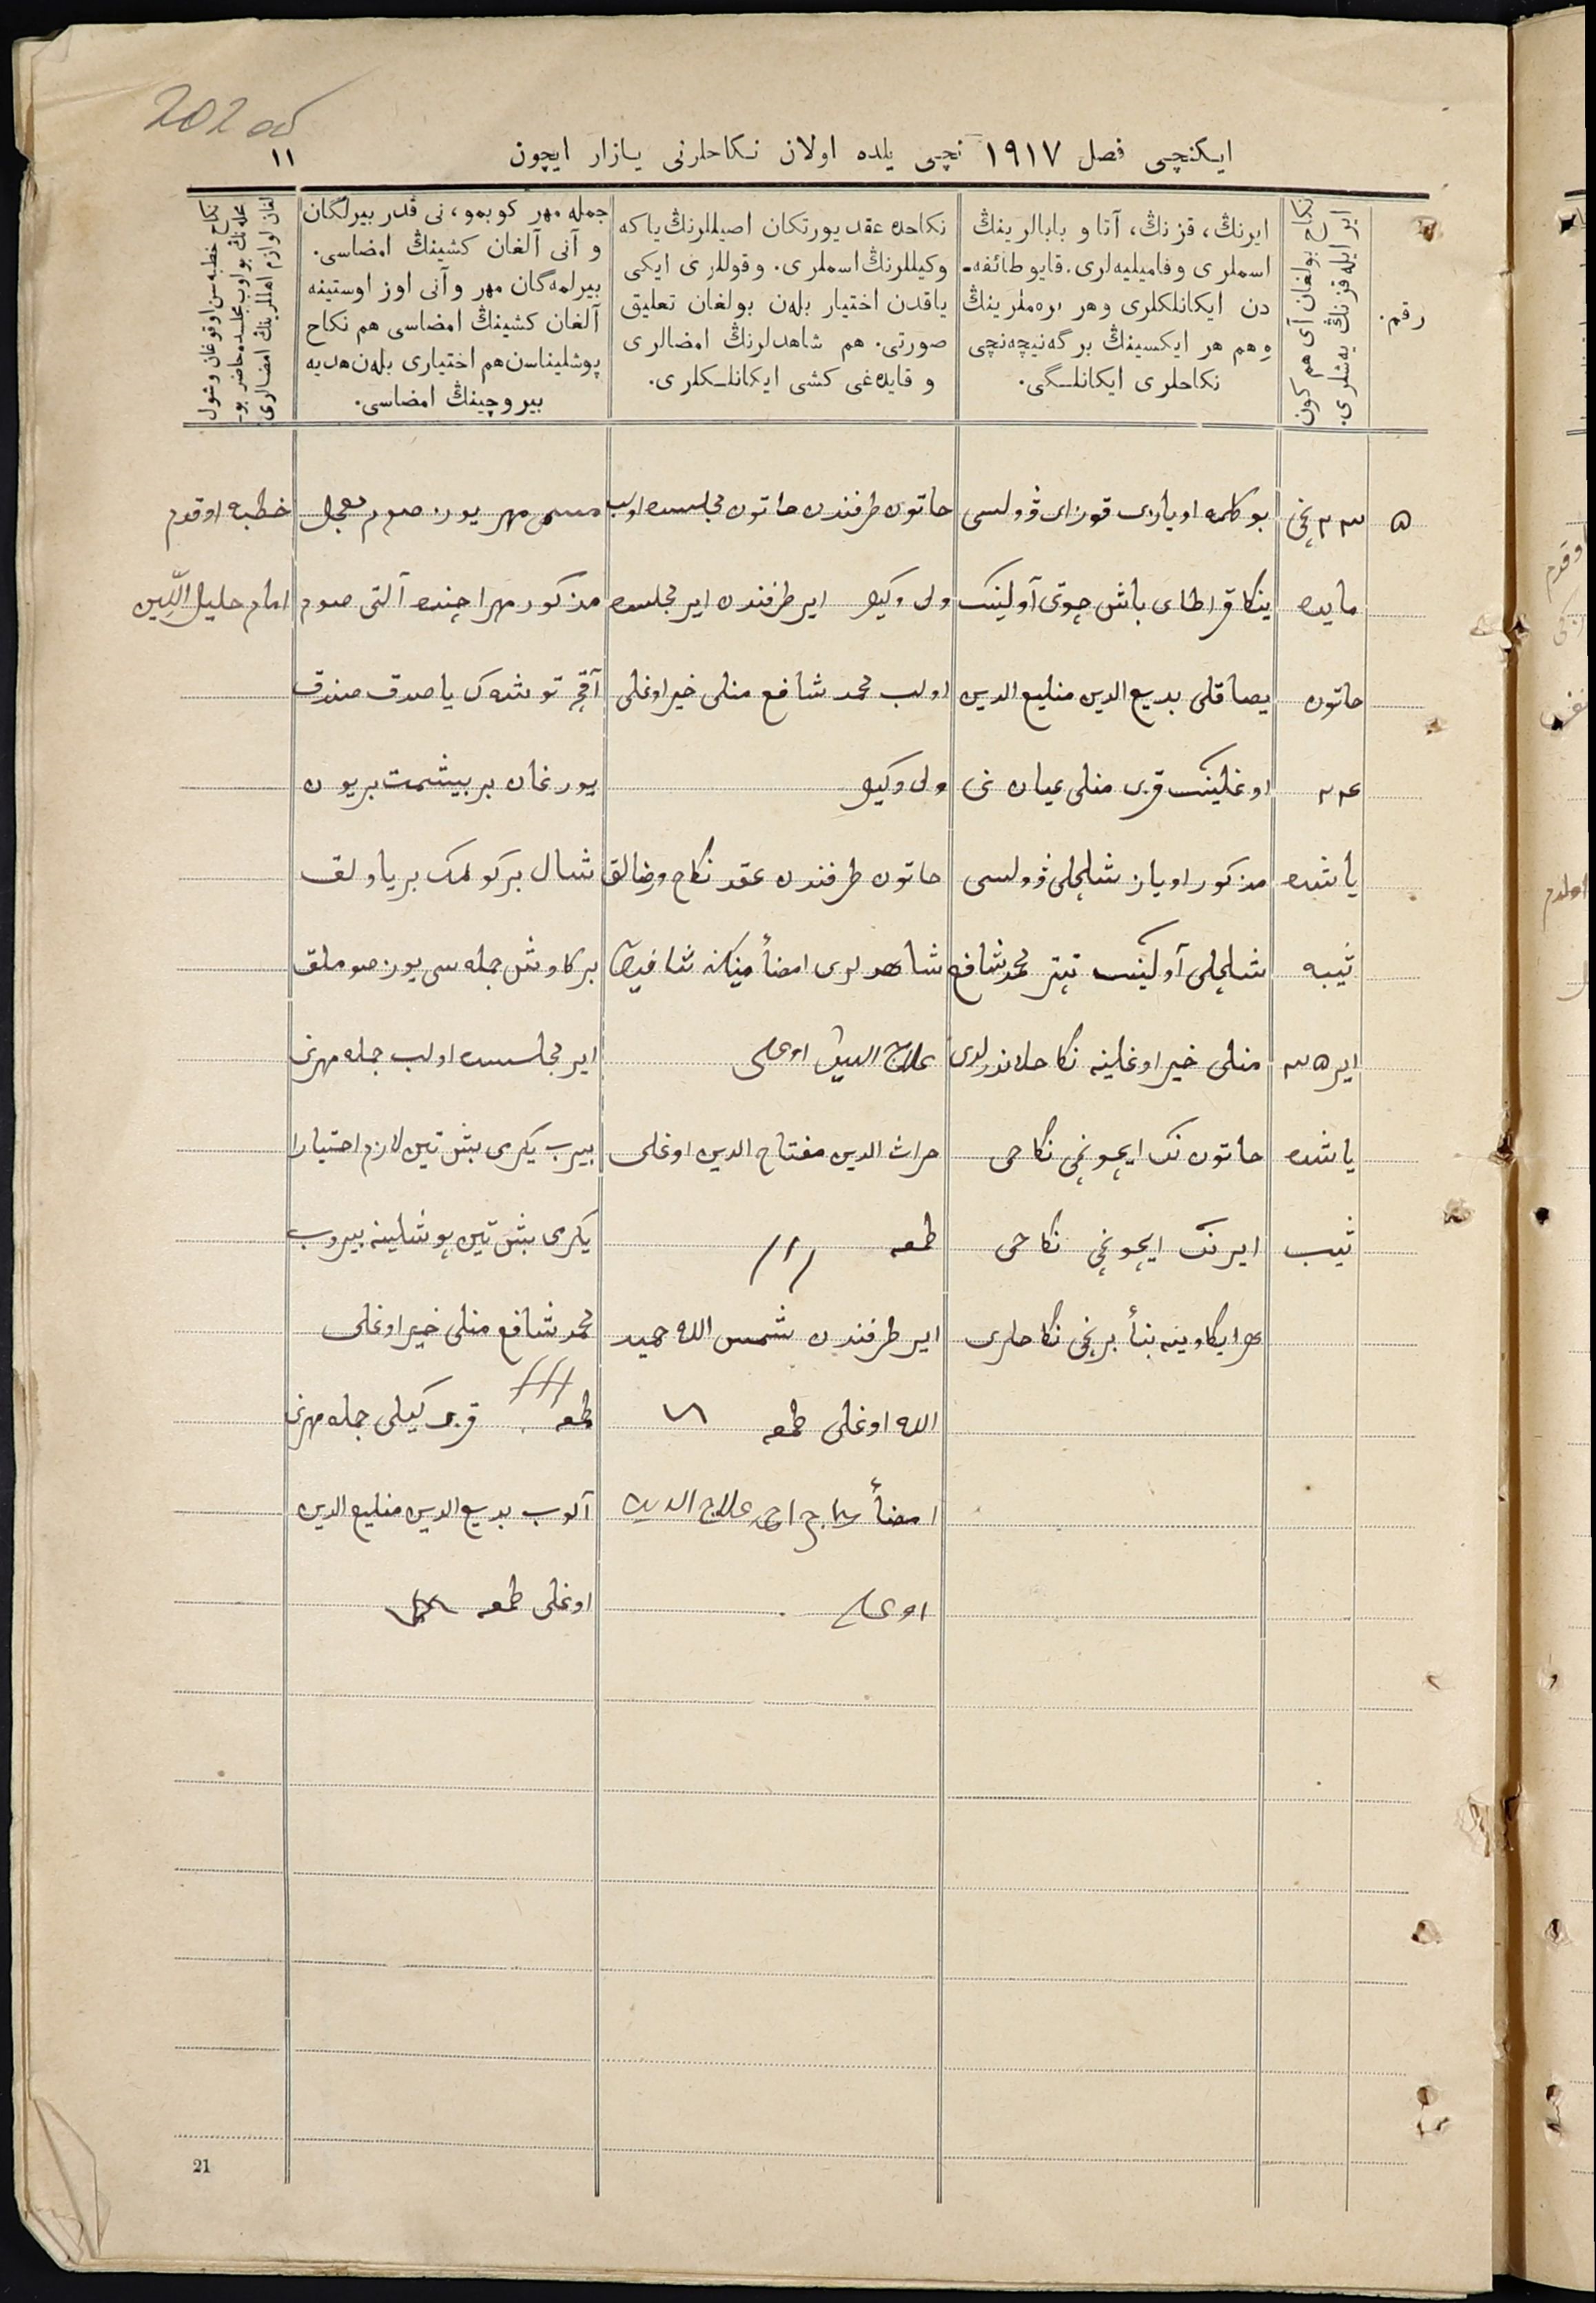 202 об
ایكنچی فصل ١٩١٧ نچی یلده اولان نكاحلرنی یازار ایچون
١١
رقم.
ایر ایله قزنڭ یه‌شلری.
نكاح بولغان آی هم كون
ایرنڭ، قزنڭ، آتا و بابالرینڭ
اسملری و فامیلیه‌لری، قایو طائفه‌-
دن ایكانلكلری وهر برەملرینڭ
وهم هر ایكسینڭ برگه‌نیچه‌نچی
نكاحلری ایكانلـگی.
نكاحده عقد یورتكان اصیللرنڭ یاكه
وكیللرنڭ اسملری. و قوللری ایكی
یاقدن اختیار بله‌ن بولغان تعلیق
صورتی. هم شاهدلرنڭ امضالری
و قایده‌غی كشی ایكانلـكلری.
جمله مهر كوبمو، نی قدر بیرلگان
و آنی آلغان كشینڭ امضاسی.
بیرلمه‌گان مهر وآنی اوز اوستینه
آلغان كشینڭ امضاسی هم نكاح
پوشلیناسن هم اختیاری بله‌ن هدیه
بیروچینڭ امضاسی.
نكاح خطبه‌سن اوقوغان وشول
محله‌نڭ بولوب مجلسده حاضر بو-
لغان لوازم اهللرینڭ امضالری
٥
٢٣ نچی
مایده
خاتون
٢٤
یاشده
ثیبه
ایر ٣٥
یاشده
ثیب
بوكلمه اویازی قوزای ڤولسی
ینكا قراطای باش چوتی آولینك
یصاقلی بدیع الدین منلیع الدین
اوغلینك قزی منلی عیان نی
مذكور اویاز شلچلی ڤولسی
شلچلی آولینك تپتر محمد شافع
منلی خیر اوغلینه نكاحلاندرلدی
خاتون نك ایچونچی نكاحی
ایرنك ایچونچی نكاحی
هر ایكاوینه بنأ برنچی نكاحلری
خاتون طرفندن خاتون مجلسده اولب
ولی وكیل ایر طرفندن ایر مجلسده
اولب محمد شافع منلی خیر اوغلی
ولی وكیل
خاتون طرفندن عقد نكاح ورضالق
شاهدلری امضأ
علاج الدین اوغلی
حراث الدین مفتاح الدین اوغلی
طمعه
ایر طرفندن شمس الله حمید
الله اوغلی طمعه
امضأ علاج الدین
اوغلی
مسمی مهر یوز صوم معجل
مذكور مهر اچنده آلتی صوم
آقچه توشەك یاصدق صندق
یورغان بر بیشمت بر یون
شال بر كولمك بر یاولق
بر كاوش جمله سی یوز صوملق
ایر مجلسده اولب جمله مهرنی
بیرب یكرمی بش تین لازم اختیارا
یكرمی بش تین پوشلینه بیروب
محمد شافع منلی خیر اوغلی
طمعه قز وكیلی جمله مهرنی
آلوب بدیع الدین منلیع الدین
اوغلی طمعه
خطبه اوقدم
امام خلیل الله
21